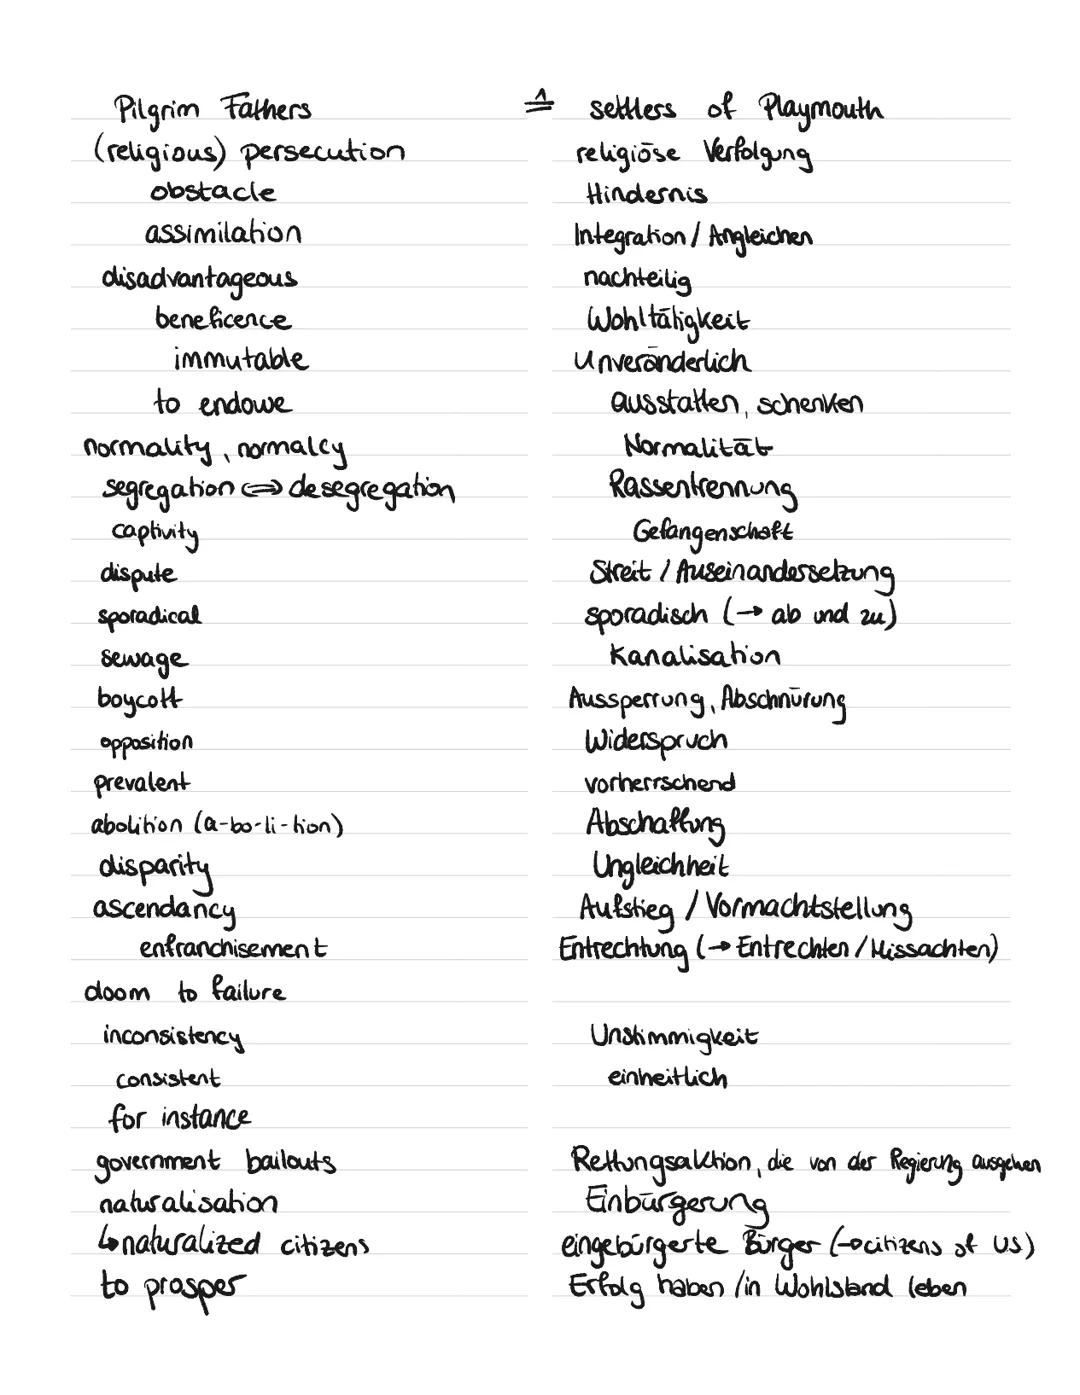 Pilgrim Fathers ≙ settlers of Playmouth
(religious) persecution religiöse Verfolgung
obstacle Hindernis
assimilation Integration / Angleichen
disadvantageous nachteilig
beneficence Wohltätigkeit
immutable Unveränderlich
to endowe ausstatten, schenken
normality, normalcy Normalität
segregation ⇔ desegregation Rassentrennung
captivity Gefangenschaft
dispute Streit / Auseinandersetzung
sporadical sporadisch (→ ab und zu)
sewage Kanalisation
boycott Aussperrung, Abschnürung
opposition Widerspruch
prevalent vorherrschend
abolition (a-bo-li-tion) Abschaffung
disparity Ungleichheit
ascendancy Aufstieg / Vormachtstellung
enfranchisement Entrechtung (→ Entrechten / Missachten)
doom to failure
inconsistency Unstimmigkeit
consistent einheitlich
for instance
government bailouts Rettungsaktion, die von der Regierung ausgehen
naturalisation Einbürgerung
↳ naturalized citizens eingebürgerte Bürger (→ citizens of US)
to prosper Erfolg haben / in Wohlstand leben